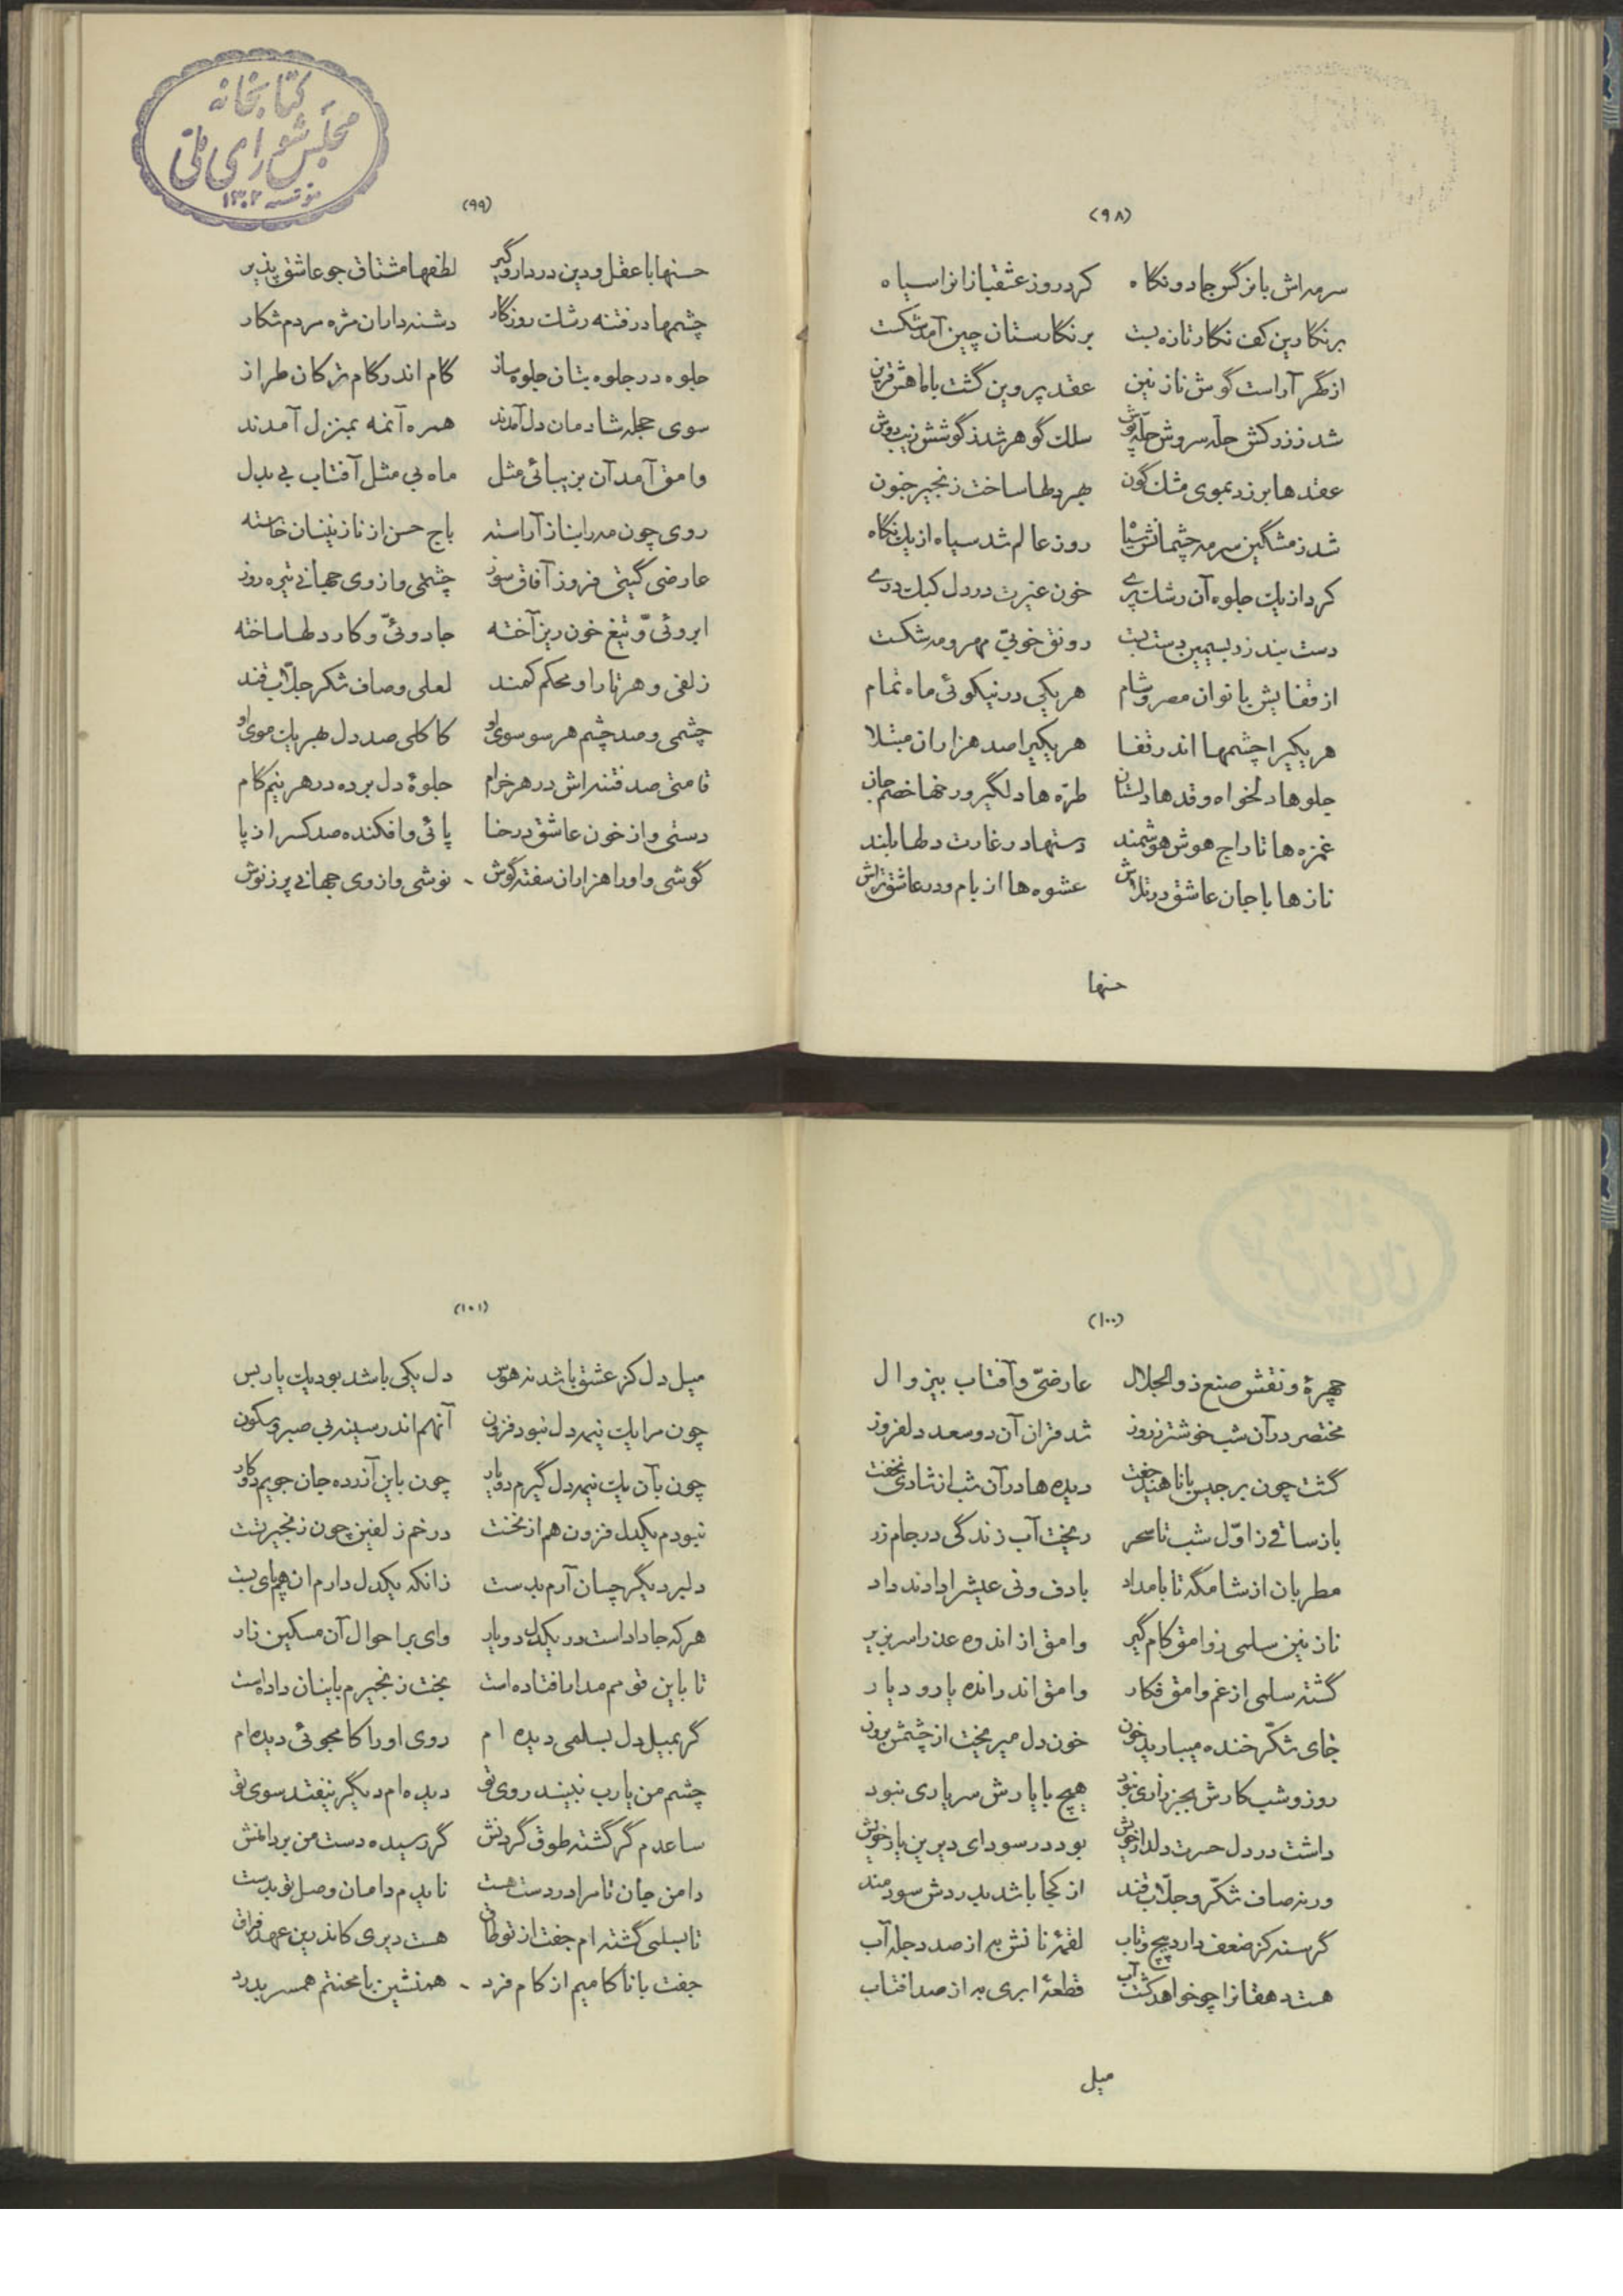 (۹۸)
سرمه‌اش با نرگس جادو نگاه کرد روز عشقبازانرا سیاه
بر نگارین کف نگار تازه بست بر نگارستان چین آمد شکست
از گهر آراست گوش نازنین عقد پروین گشت با ماهش قرین
شد ز زرکش حله سروش حله پوش سلک گوهر شد ز گوشش زیب دوش
عقدها بر زد بموی مشک گون بهر دلها ساخت زنجیر جنون
شد ز مشگین سرمه چشمانش سیاه روز عالم شد سیاه از یک نگاه
کرد از یک جلوه آن رشک پری خون غیرت در دل کبک دری
دست بند زر بسیمین دست بست رونق خوبی مهر و مه شکست
از قفایش بانوان مصر و شام هر یکی در نیکوئی ماه تمام
هر یکیرا چشمها اندر قفا هر یکیرا صد هزاران مبتلا
جلوها دلخواه و قدها دلستان طره‌ها دلگیر و رخها خصم جان
غمزه‌ها تاراج هوش هوشمند دستها در غارت دلها بلند
نازها با جان عاشق در تلاش عشوه‌ها از بام و در عاشق تراش
حسنها
کتابخانه
مجلس شورای ملی
مؤسسه ۱۳۰۲
(۹۹)
حسنها با عقل و دین در دار و گیر لطفها مشتاق جو عاشق پذیر
چشمها در فتنه رشک روزگار دشنه داران مژه مردم شکار
جلوه در جلوه بتان جلوه ساز گام اندر گام ترکان طراز
سوی حجله شادمان دل آمدند همره آنمه بمنزل آمدند
وامق آمد آن بزیبائی مثل ماه بی مثل آفتاب بی بدل
روی چون مه را بناز آراسته باج حسن از نازنینان خاسته
عارضی گیتی فروز آفاق سوز چشمی و از وی جهانی تیره روز
ابروئی و تیغ خون ریز آخته جادوئی و کار دلها ساخته
زلفی و هر تار او محکم کمند لعلی و صاف شکر جلاب قند
چشمی و صد چشم هر سو سوی او کاکلی صد دل بهر یک موی او
قامتی صد فتنه‌اش در هر خرام جلوهٔ دل برده در هر نیم گام
دستی و از خون عاشق در حنا پائی و افکنده صد کسرا ز پا
گوشی و او را هزاران سفته گوش نوشی و از وی جهانی پر ز نوش
(۱۰۰)
چهرهٔ و نقش صنع ذوالجلال عارضی و آفتاب بیزوال
مختصر در آن شب خوشتر ز روز شد قران آن دو سعد دلفروز
گشت چون برجیس با ناهید جفت دیده‌ها در آن شب از شادی نخفت
باز ساقی ز اول شب تا سحر ریخت آب زندگی در جام زر
مطربان از شامگه تا بامداد با دف و نی عیشرا دادند داد
نازنین سلمی ز وامق کام گیر وامق از اندوه عذرا سر بزیر
گشته سلمی از غم وامق فکار وامق اندر انده یار و دیار
جای شکر خنده میبارید خون خون دل میریخت از چشمش برون
روز و شب کارش بجز زاری نبود هیچ با یارش سر یاری نبود
داشت در دل حسرت دلدار خویش بود در سودای دیرین یار خویش
ورنه صاف شکر و جلاب قند از کجا باشد بدردش سودمند
گرسنه کز ضعف دارد پیچ و تاب لقمهٔ نانش به از صد دجله آب
هست دهقانرا چو خواهد کشت آب قطعهٔ ابری به از صد افتاب
میل
(۱۰۱)
میل دل کز عشق باشد نه هوس دل یکی باشد بود یک یار بس
چون مرا یک نیمه دل نبود فزون آنهم اندر سینه بی صبر و سکون
چون بآن یک نیمه دل گیرم دو یار چون باین آزرده جان جویم دو کار
نبودم یکدل فزون هم از نخست در خم زلفین چون زنجیر تست
دلبر دیگر چسان آرم بدست زانکه یکدل دارم ان هم پای بست
هر که جا داد است در یکدل دو یار وای بر احوال آن مسکین زار
تا باین قومم مدار افتاده است بخت زنجیرم باینان داده است
گر بمیل دل بسلمی دیده‌ام روی او را کامجوئی دیده‌ام
چشم من یارب نبیند روی تو دیده‌ام دیگر نیفتد سوی تو
ساعدم گر گشته طوق گردنش گر رسیده دست من بر دامنش
دامن جان تا مرا در دست هست نایدم دامان وصل تو بدست
تا بسلمی گشته‌ام جفت از تو طاق هست دیری کاندرین عهد فراق
جفت با ناکامیم از کام فرد همنشین با محنتم همسر بدرد